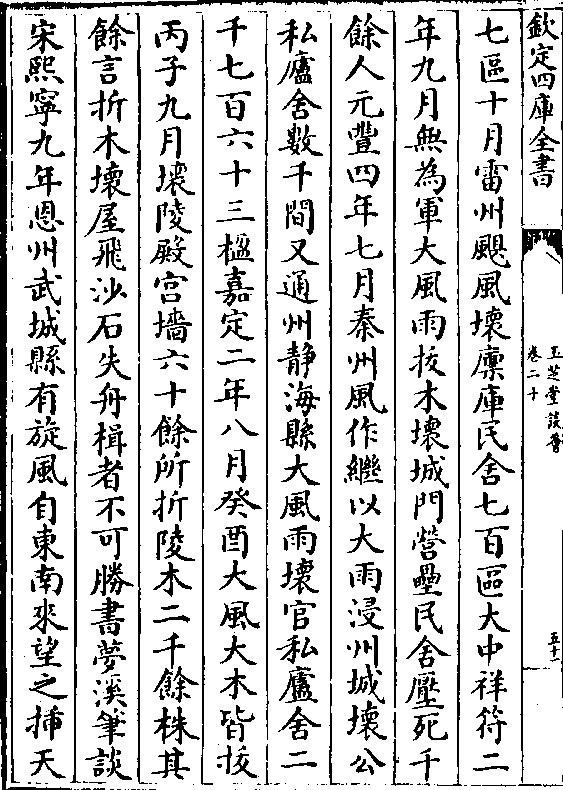 欽定四庫全書
玉芝堂談薈
卷二十
五十一
七區十月雷州颶風壞廪庫民舍七百區大中祥符二
年九月無為軍大風雨拔木壞城門營壘民舍壓死千
餘人元豐四年七月秦州風作繼以大雨浸州城壞公
私廬舍數千間又通州静海縣大風雨壞官私廬舍二
千七百六十三楹嘉定二年八月癸酉大風大木皆拔
丙子九月壞陵殿宫墻六十餘所折陵木二千餘株其
餘言折木壞屋飛沙石失舟楫者不可勝書夢溪筆談
宋熙寧九年恩州武城縣有旋風自東南來望之揷天